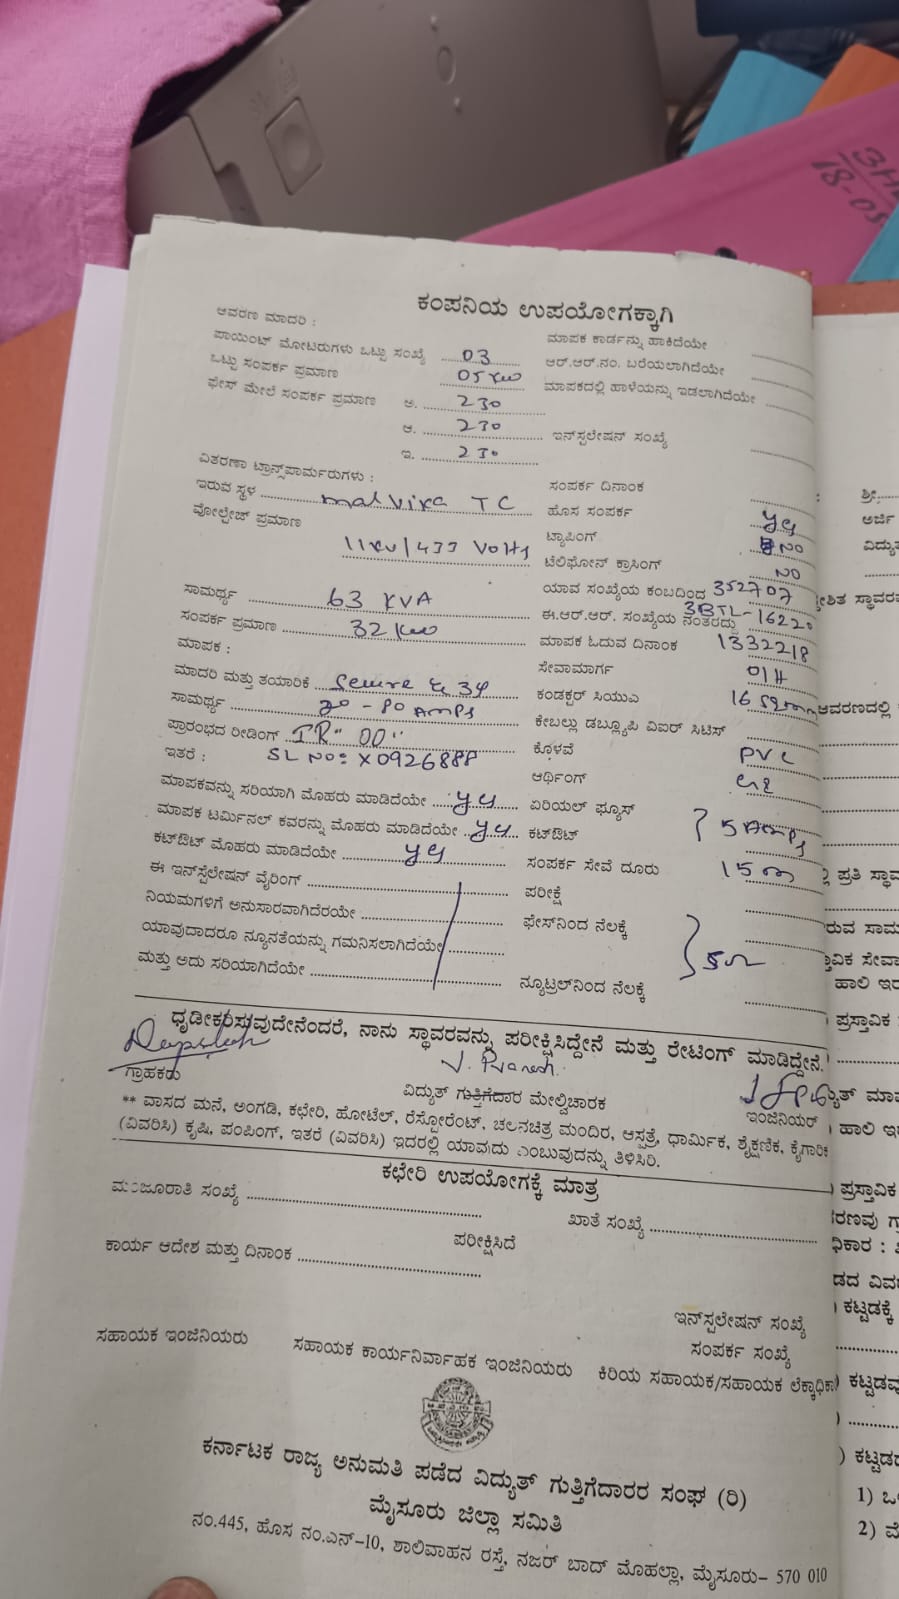 3H
18-05
ಕಂಪನಿಯ ಉಪಯೋಗಕ್ಕಾಗಿ
ಆವರಣ ಮಾದರಿ :
ಪಾಯಿಂಟ್ ಮೋಟರುಗಳು ಒಟ್ಟು ಸಂಖ್ಯೆ 03
ಒಟ್ಟು ಸಂಪರ್ಕ ಪ್ರಮಾಣ 05 KW
ಫೇಸ್ ಮೇಲೆ ಸಂಪರ್ಕ ಪ್ರಮಾಣ ಅ. 230
ಆ. 230
ಇ. 230
ವಿತರಣಾ ಟ್ರಾನ್ಸ್‌ಫಾರ್ಮರುಗಳು :
ಇರುವ ಸ್ಥಳ malvika TC
ವೋಲ್ಟೇಜ್ ಪ್ರಮಾಣ
11KV/433 Volts
ಸಾಮರ್ಥ್ಯ 63 KVA
ಸಂಪರ್ಕ ಪ್ರಮಾಣ 32 KW
ಮಾಪಕ :
ಮಾದರಿ ಮತ್ತು ತಯಾರಿಕೆ Secure
ಸಾಮರ್ಥ್ಯ 20 - 80 AMPS
ಪ್ರಾರಂಭದ ರೀಡಿಂಗ್ IR" 00"
ಇತರೆ : SL NO: X0926888
ಮಾಪಕವನ್ನು ಸರಿಯಾಗಿ ಮೊಹರು ಮಾಡಿದೆಯೇ yes
ಮಾಪಕ ಟರ್ಮಿನಲ್ ಕವರನ್ನು ಮೊಹರು ಮಾಡಿದೆಯೇ yes
ಕಟ್‌ಔಟ್ ಮೊಹರು ಮಾಡಿದೆಯೇ yes
ಈ ಇನ್‌ಸ್ಟಲೇಷನ್ ವೈರಿಂಗ್
ನಿಯಮಗಳಿಗೆ ಅನುಸಾರವಾಗಿದೆರಯೇ
ಯಾವುದಾದರೂ ನ್ಯೂನತೆಯನ್ನು ಗಮನಿಸಲಾಗಿದೆಯೇ
ಮತ್ತು ಅದು ಸರಿಯಾಗಿದೆಯೇ
ಮಾಪಕ ಕಾರ್ಡನ್ನು ಹಾಕಿದೆಯೇ
ಆರ್.ಆರ್.ನಂ. ಬರೆಯಲಾಗಿದೆಯೇ
ಮಾಪಕದಲ್ಲಿ ಹಾಳೆಯನ್ನು ಇಡಲಾಗಿದೆಯೇ
ಇನ್‌ಸ್ಟಲೇಷನ್ ಸಂಖ್ಯೆ
ಸಂಪರ್ಕ ದಿನಾಂಕ
ಹೊಸ ಸಂಪರ್ಕ yes
ಟ್ಯಾಪಿಂಗ್ NO
ಟೆಲಿಫೋನ್ ಕ್ರಾಸಿಂಗ್ NO
ಯಾವ ಸಂಖ್ಯೆಯ ಕಂಬದಿಂದ 352707
ಈ.ಆರ್.ಆರ್. ಸಂಖ್ಯೆಯ ನಂತರದ್ದು 3BTL-16220
ಮಾಪಕ ಓದುವ ದಿನಾಂಕ 1332218
ಸೇವಾಮಾರ್ಗ O/H
ಕಂಡಕ್ಟರ್ ಸಿಯುಎ 16 sqmm
ಕೇಬಲ್ಲು ಡಬ್ಲ್ಯೂಪಿ ವಿಐರ್ ಸಿಟಿಸ್
ಕೊಳವೆ PVC
ಆರ್ಥಿಂಗ್
ಏರಿಯಲ್ ಫ್ಯೂಸ್
ಕಟ್‌ಔಟ್ 5 Amps
ಸಂಪರ್ಕ ಸೇವೆ ದೂರು 15 m
ಪರೀಕ್ಷೆ
ಫೇಸ್‌ನಿಂದ ನೆಲಕ್ಕೆ
5Ω
ನ್ಯೂಟ್ರಲ್‌ನಿಂದ ನೆಲಕ್ಕೆ
ಧೃಡೀಕರಿಸುವುದೇನೆಂದರೆ, ನಾನು ಸ್ಥಾವರವನ್ನು ಪರೀಕ್ಷಿಸಿದ್ದೇನೆ ಮತ್ತು ರೇಟಿಂಗ್ ಮಾಡಿದ್ದೇನೆ.
ಗ್ರಾಹಕರು
ವಿದ್ಯುತ್ ಗುತ್ತಿಗೆದಾರ ಮೇಲ್ವಿಚಾರಕ
ಇಂಜಿನಿಯರ್
** ವಾಸದ ಮನೆ, ಅಂಗಡಿ, ಕಛೇರಿ, ಹೋಟೆಲ್, ರೆಸ್ಟೋರೆಂಟ್, ಚಲನಚಿತ್ರ ಮಂದಿರ, ಆಸ್ಪತ್ರೆ, ಧಾರ್ಮಿಕ, ಶೈಕ್ಷಣಿಕ, ಕೈಗಾರಿಕ
(ವಿವರಿಸಿ) ಕೃಷಿ, ಪಂಪಿಂಗ್, ಇತರೆ (ವಿವರಿಸಿ) ಇದರಲ್ಲಿ ಯಾವುದು ಎಂಬುವುದನ್ನು ತಿಳಿಸಿರಿ.
ಕಛೇರಿ ಉಪಯೋಗಕ್ಕೆ ಮಾತ್ರ
ಮಂಜೂರಾತಿ ಸಂಖ್ಯೆ
ಖಾತೆ ಸಂಖ್ಯೆ
ಪರೀಕ್ಷಿಸಿದೆ
ಕಾರ್ಯ ಆದೇಶ ಮತ್ತು ದಿನಾಂಕ
ಇನ್‌ಸ್ಟಲೇಷನ್ ಸಂಖ್ಯೆ
ಸಂಪರ್ಕ ಸಂಖ್ಯೆ
ಸಹಾಯಕ ಇಂಜಿನಿಯರು ಸಹಾಯಕ ಕಾರ್ಯನಿರ್ವಾಹಕ ಇಂಜಿನಿಯರು ಕಿರಿಯ ಸಹಾಯಕ/ಸಹಾಯಕ ಲೆಕ್ಕಾಧಿಕಾ
ಕರ್ನಾಟಕ ರಾಜ್ಯ ಅನುಮತಿ ಪಡೆದ ವಿದ್ಯುತ್ ಗುತ್ತಿಗೆದಾರರ ಸಂಘ (ರಿ)
ಮೈಸೂರು ಜಿಲ್ಲಾ ಸಮಿತಿ
ನಂ.445, ಹೊಸ ನಂ.ಎನ್-10, ಶಾಲಿವಾಹನ ರಸ್ತೆ, ನಜರ್ ಬಾದ್ ಮೊಹಲ್ಲಾ, ಮೈಸೂರು- 570 010